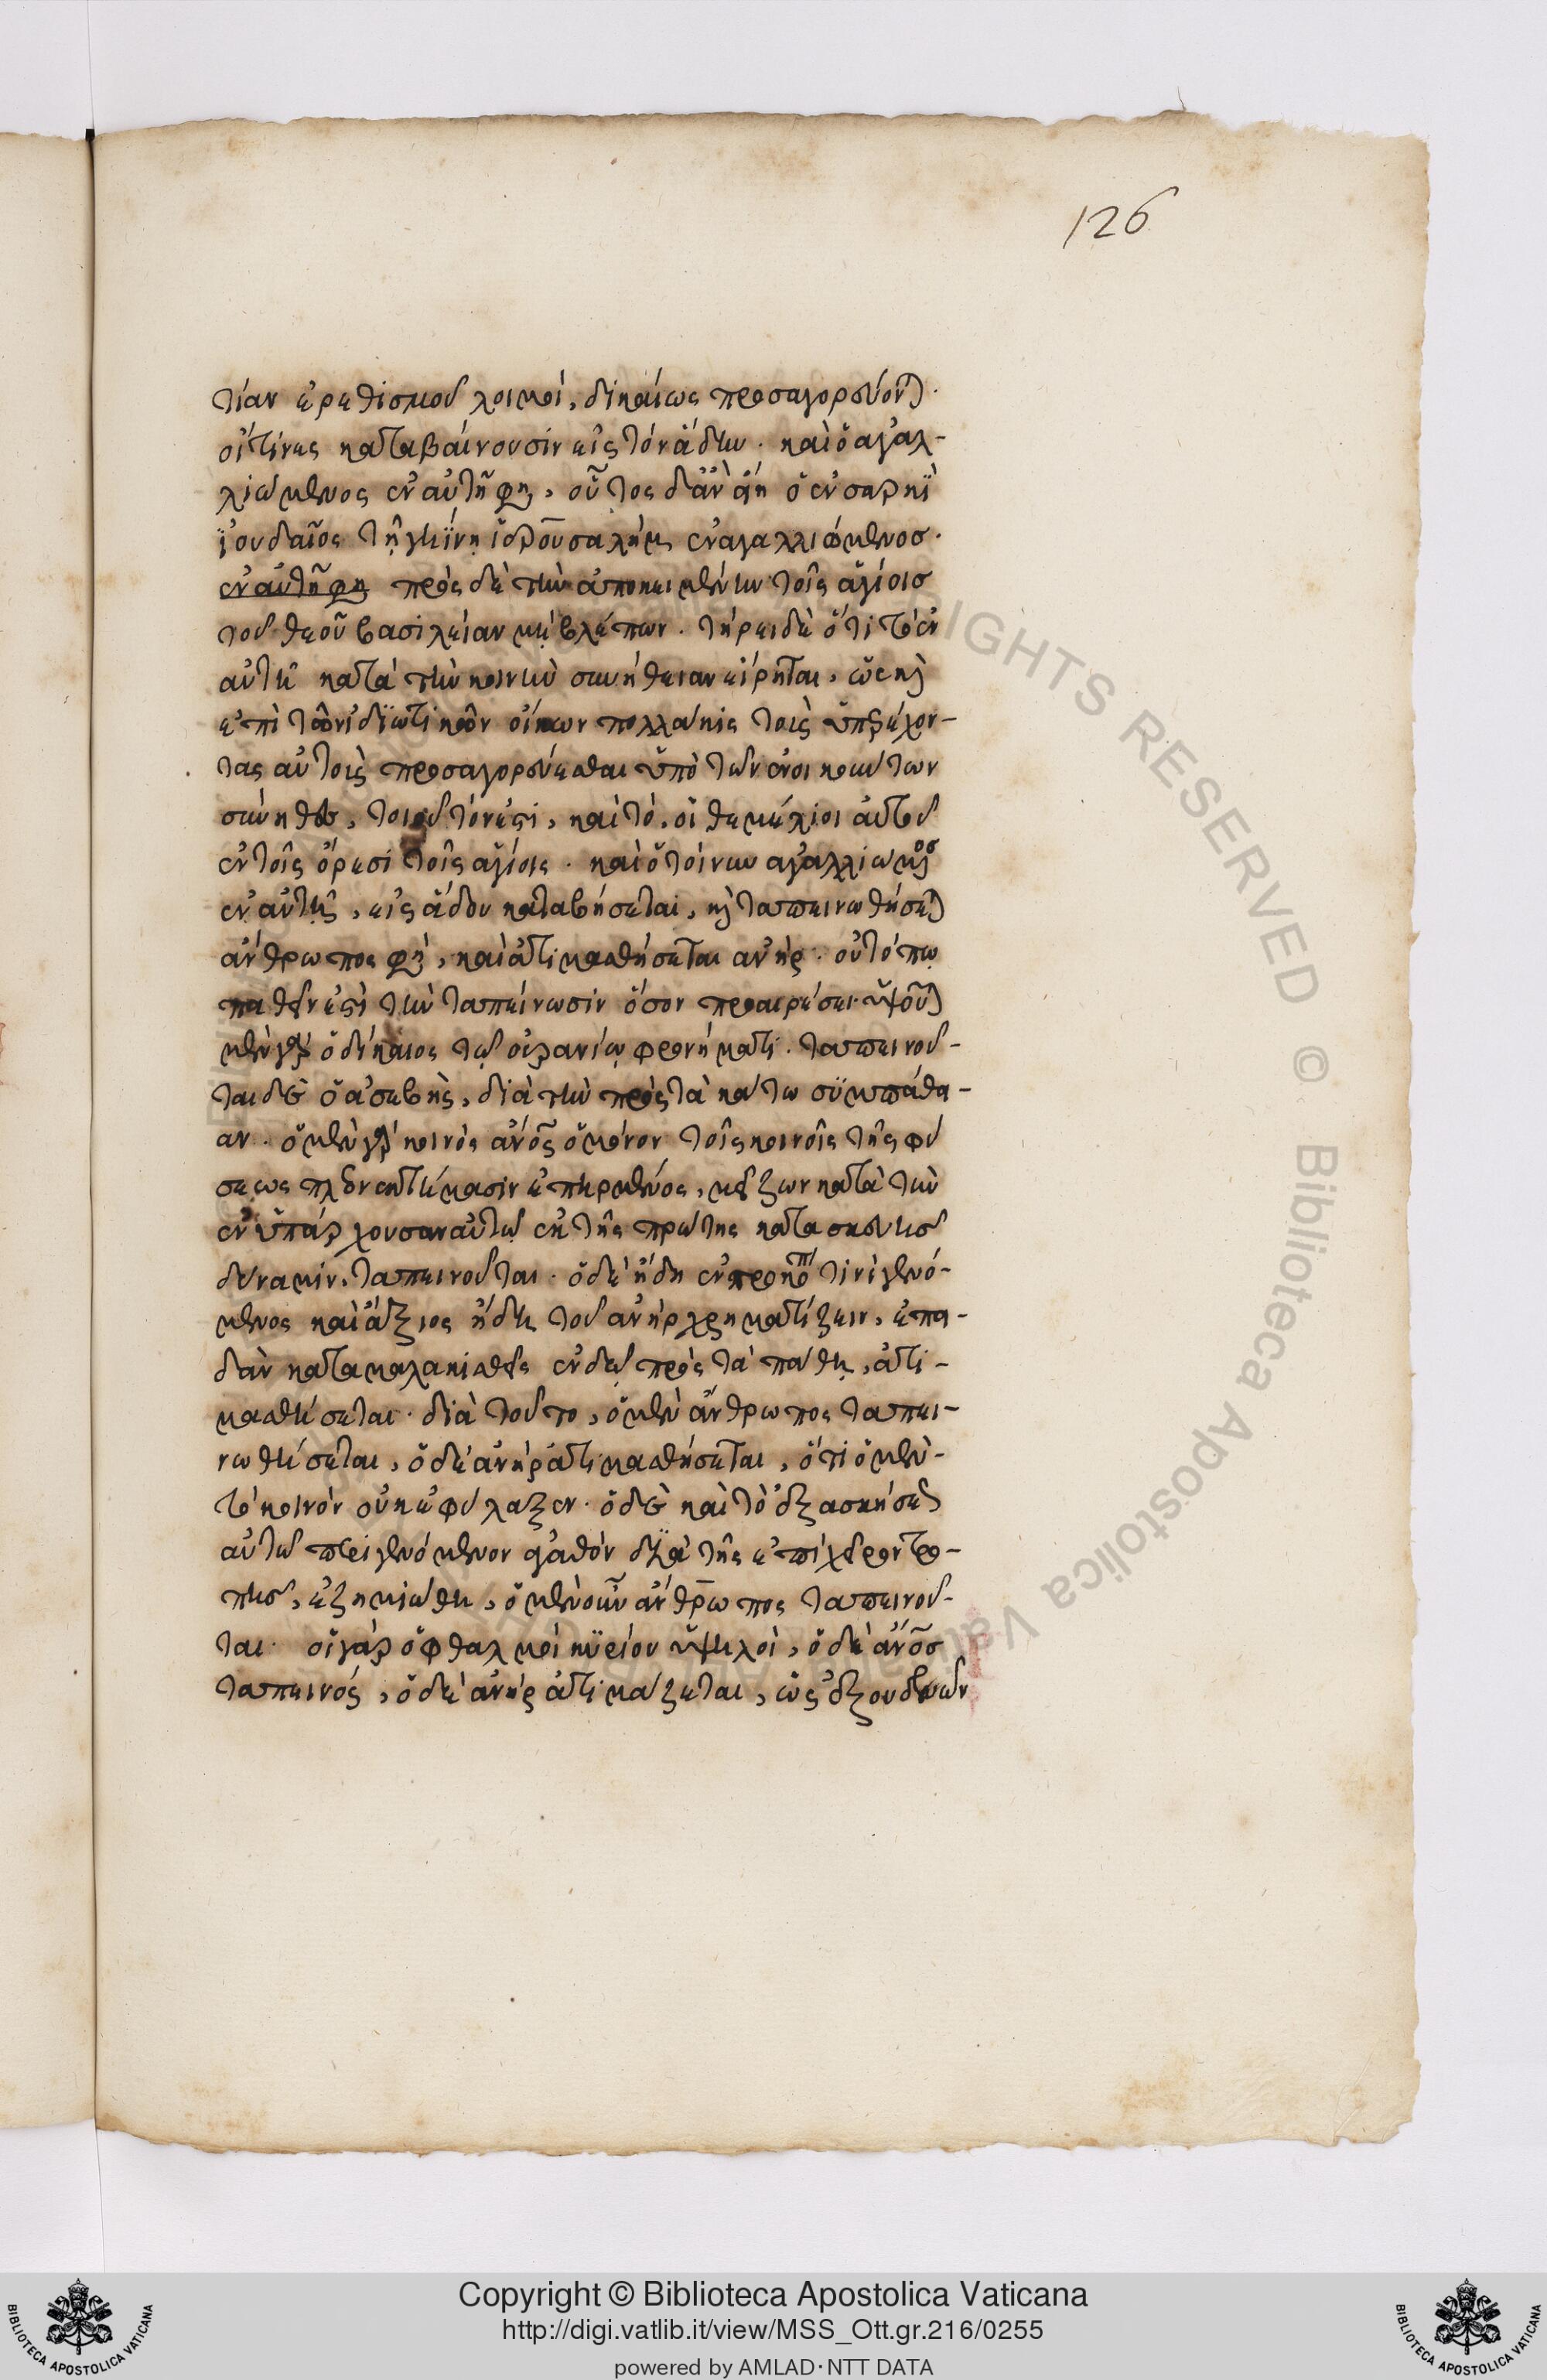 126
τίαν ἐρεθισμοῦ λοιμοί, δικαίως προσαγορεύοντ(αι).
οἵτινες καταβαίνουσιν εἰς τὸν ἅδην. καὶ ὁ ἀγαλ-
λιώμενος ἐν αὐτῇ φη, οὗτος δ' ἂν εἴη ὁ ἐν σαρκὶ
ἰουδαῖος τῇ γηΐνῃ ἱερουσαλὴμ ἐναγαλλιώμενοσ.
ἐν αὐτῇ φη πρὸς δὲ τὴν ἀποκειμένην τοῖς ἁγίοισ
τοῦ θεοῦ βασιλείαν μὴ βλέπων. τήρει δὲ ὅτι τὸ ἐν
αὐτῇ κατὰ τὴν κοινὴν συνήθειαν εἴρηται, ὡς κ(αὶ)
ἐπὶ τῶν ἰδιωτικῶν οἴκων πολλάκις τοὶς ὑπερέχον-
τας αὐτοὶς προσαγορεύεσθαι ὑπὸ τῶν ἐνοικούντων
σύνηθες, τοιοῦτόν ἐστι, καὶ τὸ, οἱ θεμέλιοι αὐτοῦ
ἐν τοῖς ὄρεσι τοῖς ἁγίοις. καὶ ὁ τοίνυν ἀγαλλιώμενος
ἐν αὐτῇ, εἰς ἅδου καταβήσεται, κ(αὶ) ταπεινωθήσετ(αι)
ἄνθρωπος φησὶ, καὶ ἀτιμασθήσεται ἀνήρ. οὐ τόπῳ
παθεῖν ἐστὶ τὴν ταπείνωσιν ὅσον προαιρέσει ὑψοῦτ(αι)
μὲν γὰρ ὁ δίκαιος τῷ οὐρανίῳ φρονήματι. ταπεινοῦ-
ται δὲ ὁ ἀσεβὴς, διὰ τὴν πρὸς τὰ κάτω συμπάθει-
αν. ὁ μὲν γὰρ κοινὸς ἄνος ὁ μόνον τοῖς κοινοῖς τῆς φύ
σεως πλεονεκτήμασιν ἐπηρμένος, μείζων κατὰ τὴν
ἐνυπάρχουσαν αὐτῷ ἐκ τῆς πρώτης κατασκευῆσ
δύναμιν, ταπεινοῦται. ὁ δὲ ἤδη ἐν προκοπῇ τινὶ γενό-
μενος καὶ ἄξιος ἤδη τοῦ ἀνὴρ χρηματίζειν, ἐπει-
δὰν καταμαλακισθεὶς ἐνδῷ πρὸς τὰ πάθη, ἀτι-
μασθήσεται. διὰ τοῦτο, ὁ μὲν ἄνθρωπος ταπει-
νωθήσεται, ὁ δὲ ἀνὴρ ἀτιμασθήσεται, ὅτι ὁ μὲν-
τὸ κοινὸν οὐκ ἐφύλαξεν. ὁ δὲ καὶ τὸ ἐξ ἀσκήσεως
αὐτῷ περιγενόμενον ἀγαθὸν διὰ τῆς ἐπὶ χεῖρον τρο-
πῆσ, ἐζημιώθη, ὁ μὲν οὖν ἄνθρωπος ταπεινοῦ-
ται. οἱ γὰρ ὀφθαλμοὶ κυρίου ὑψηλοὶ, ὁ δὲ ἄνοσ
ταπεινός, ὁ δὲ ἀνὴρ ἀτιμάζεται, ὡς ἐξουδενῶν
Copyright © Biblioteca Apostolica Vaticana
http://digi.vatlib.it/view/MSS_Ott.gr.216/0255
powered by AMLAD·NTT DATA